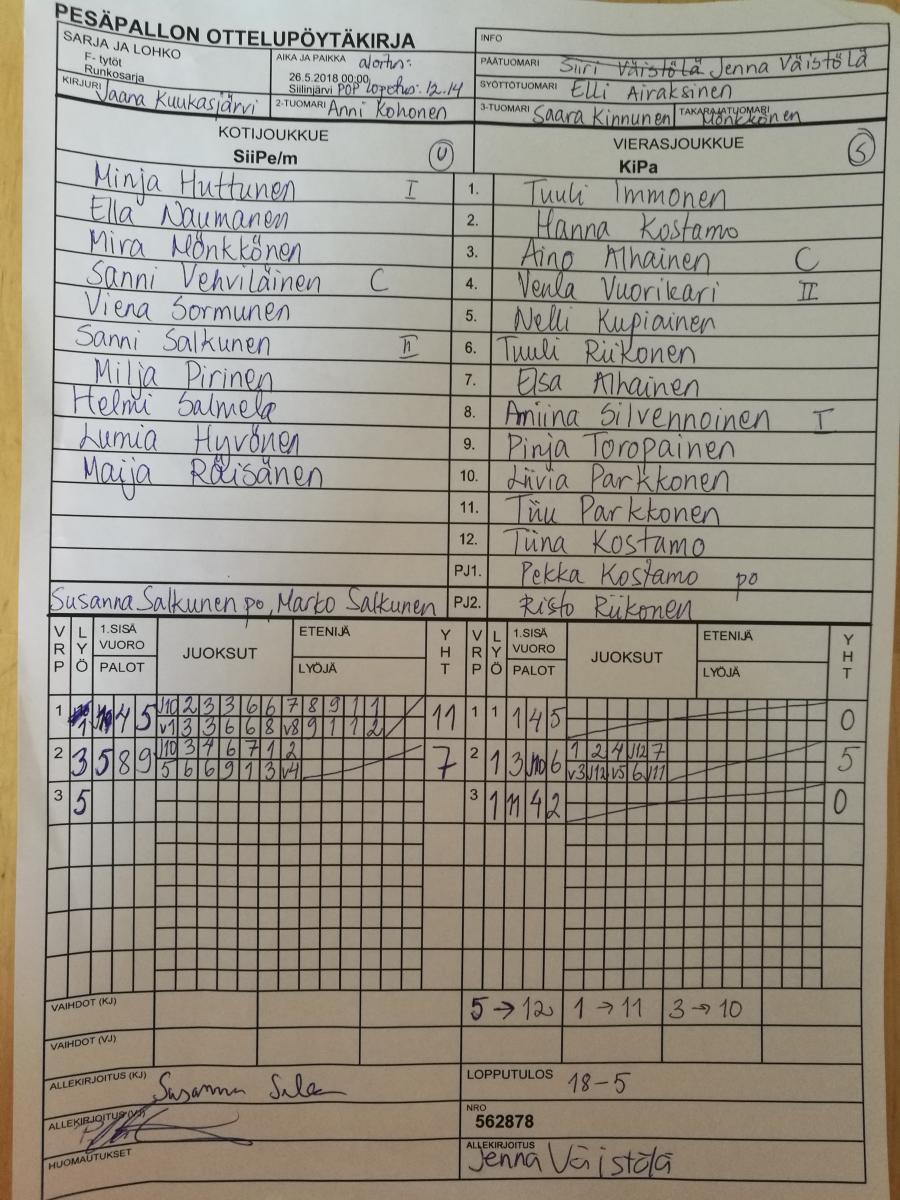 PESÄPALLON OTTELUPÖYTÄKIRJA
INFO
SARJA JA LOHKO
F- tytöt
Runkosarja
AIKA JA PAIKKA aloitus:
26.5.2018 00:00
Siilinjärvi POP lopetus: 12.14
PÄÄTUOMARI Siiri Väistölä Jenna Väistölä
SYÖTTÖTUOMARI Elli Airaksinen
KIRJURI Jaana Kuukasjärvi
2-TUOMARI Anni Kohonen
3-TUOMARI Saara Kinnunen
TAKARAJATUOMARI Mönkkönen
KOTIJOUKKUE
SiiPe/m U
VIERASJOUKKUE
KiPa S
Minja Huttunen I 1. Tuuli Immonen
Ella Naumanen 2. Hanna Kostamo
Mira Mönkkönen 3. Aino Alhainen C
Sanni Vehviläinen C 4. Venla Vuorikari II
Viena Sormunen 5. Nelli Kupiainen
Sanni Salkunen II 6. Tuuli Riikonen
Milja Pirinen 7. Elsa Alhainen
Helmi Salmela 8. Amiina Silvennoinen I
Lumia Hyvönen 9. Pinja Toropainen
Maija Räisänen 10. Liivia Parkkonen
11. Tiiu Parkkonen
12. Tiina Kostamo
PJ1. Pekka Kostamo po
Susanna Salkunen po, Marko Salkunen PJ2. Risto Riikonen
VRP LYÖ 1.SISÄ VUORO PALOT JUOKSUT ETENIJÄ LYÖJÄ YHT VRP LYÖ 1.SISÄ VUORO PALOT JUOKSUT ETENIJÄ LYÖJÄ YHT
1 1 J10 4 5 J10 2 3 3 6 6 7 8 9 1 1 11 1 1 1 4 5 0
v1 3 3 6 6 8 v8 9 1 1 2
2 3 5 8 9 J10 3 4 6 7 1 2 7 2 1 3 J10 6 1 2 4 J12 7 5
5 6 6 9 1 3 v4 v3 J12 v5 6 J11
3 5 3 1 11 4 2 0
VAIHDOT (KJ) 5 → 12 1 → 11 3 → 10
VAIHDOT (VJ)
ALLEKIRJOITUS (KJ) Susanna
LOPPUTULOS 18-5
ALLEKIRJOITUS (VJ)
NRO
562878
HUOMAUTUKSET
ALLEKIRJOITUS
Jenna Väistölä